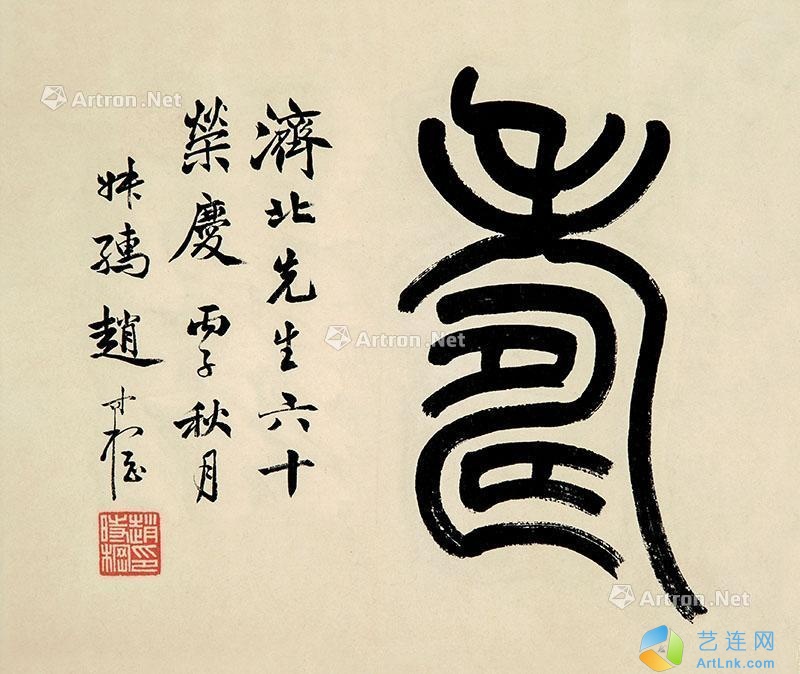 壽
濟北先生六十
榮慶 丙子秋月
叔孺趙時棡
趙印時棡
Artron.Net
Artron.Net
Artron.Net
艺连网
ArtLnk.com